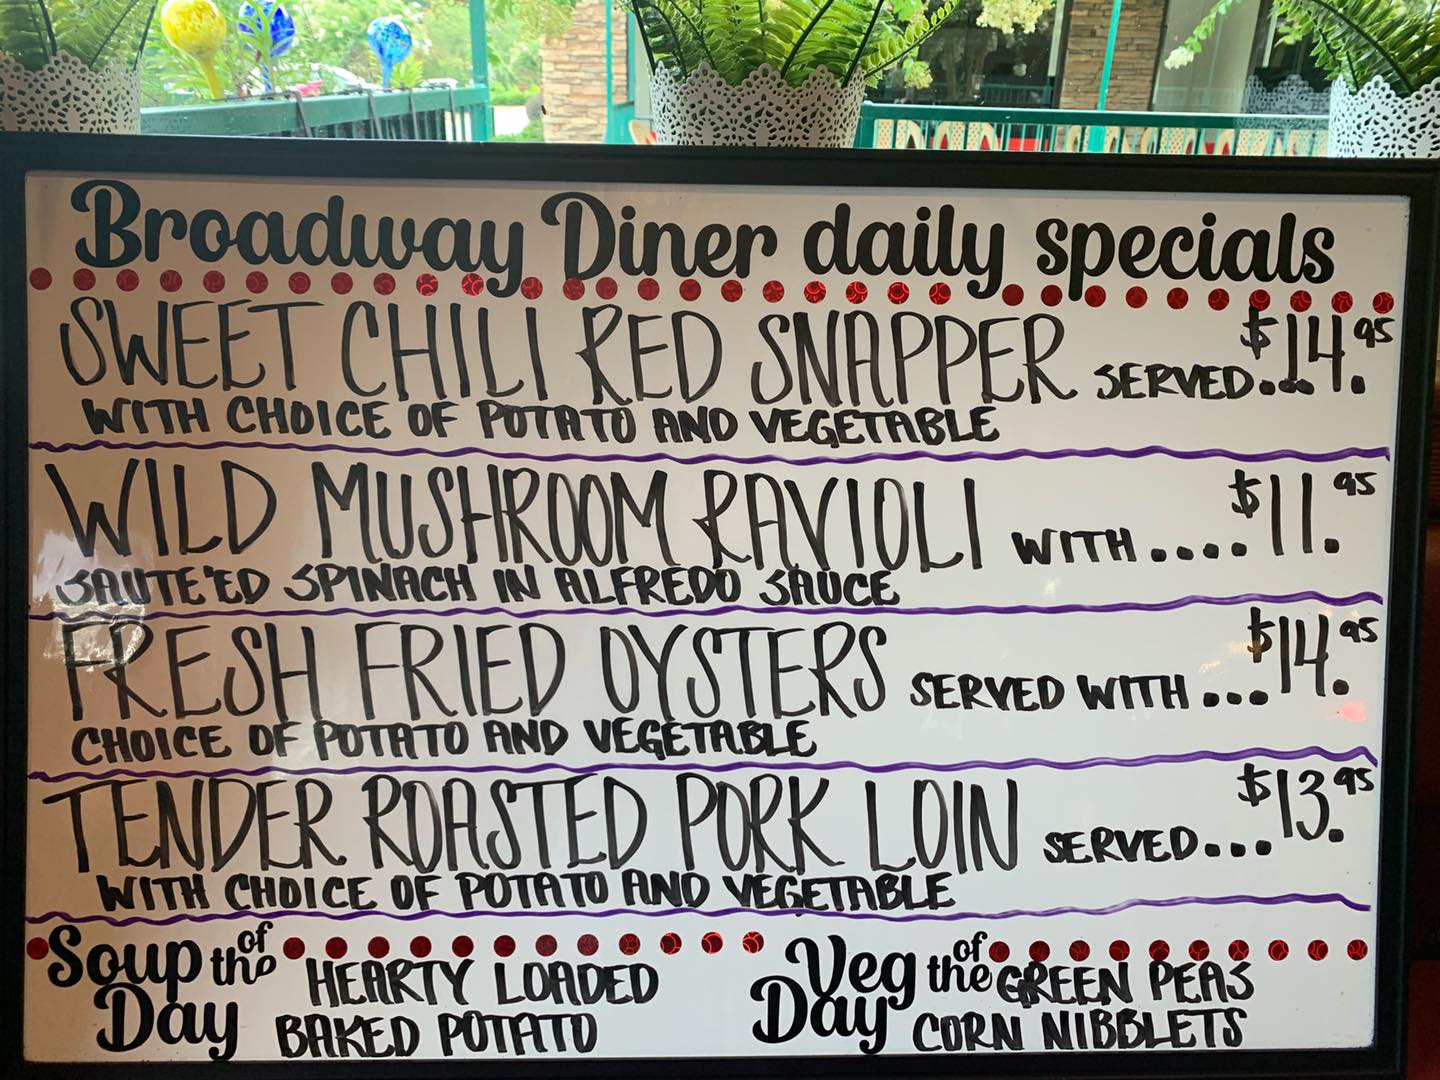 Broadway Diner daily specials
SWEET CHILI RED SNAPPER SERVED.... $14.95
WITH CHOICE OF POTATO AND VEGETABLE
WILD MUSHROOM RAVIOLI WITH .... $11.95
SAUTE'ED SPINACH IN ALFREDO SAUCE
FRESH FRIED OYSTERS SERVED WITH ... $14.95
CHOICE OF POTATO AND VEGETABLE
TENDER ROASTED PORK LOIN SERVED... $13.95
WITH CHOICE OF POTATO AND VEGETABLE
Soup of the Day
HEARTY LOADED
BAKED POTATO
Veg of the Day
GREEN PEAS
CORN NIBBLETS